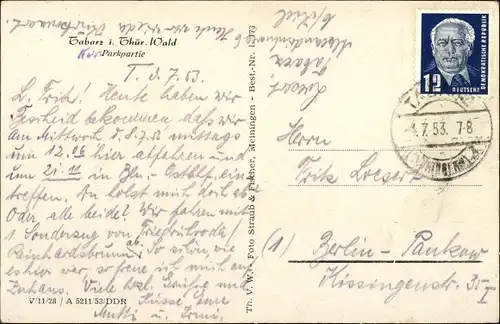 Tabarz i. Thür. Wald
Kur Parkpartie
T. 3.7.53.
L. Fritz! Heute haben wir
Bescheid bekommen daß wir
am Mittwoch d. 8.7.53 mittags
um 12.06 hier abfahren und
um 21.11 in Bln.- Ostbhf. ein-
treffen. Du holst mich doch ab?
Oder alle beide? Wir fahren mit
1 Sonderzug von Friedrichroda/
Reinhardsbrunn ab. So schön, wie
es hier war, so freue ich mich auf
Zuhaus. Viele herzl. Grüße und
Küsse Eure
Mutti u.
V/11/28 / A 5211/53/DDR
Th. V. W. - Foto Straub & Fischer, Meiningen - Best.-Nr.
Heute war wieder
Tabarz
12
DEUTSCHE
DEMOKRATISCHE REPUBLIK
7.53. 7-8
Herrn
Fritz
(1) Berlin - Pankow
Kissingenstr. 35 I